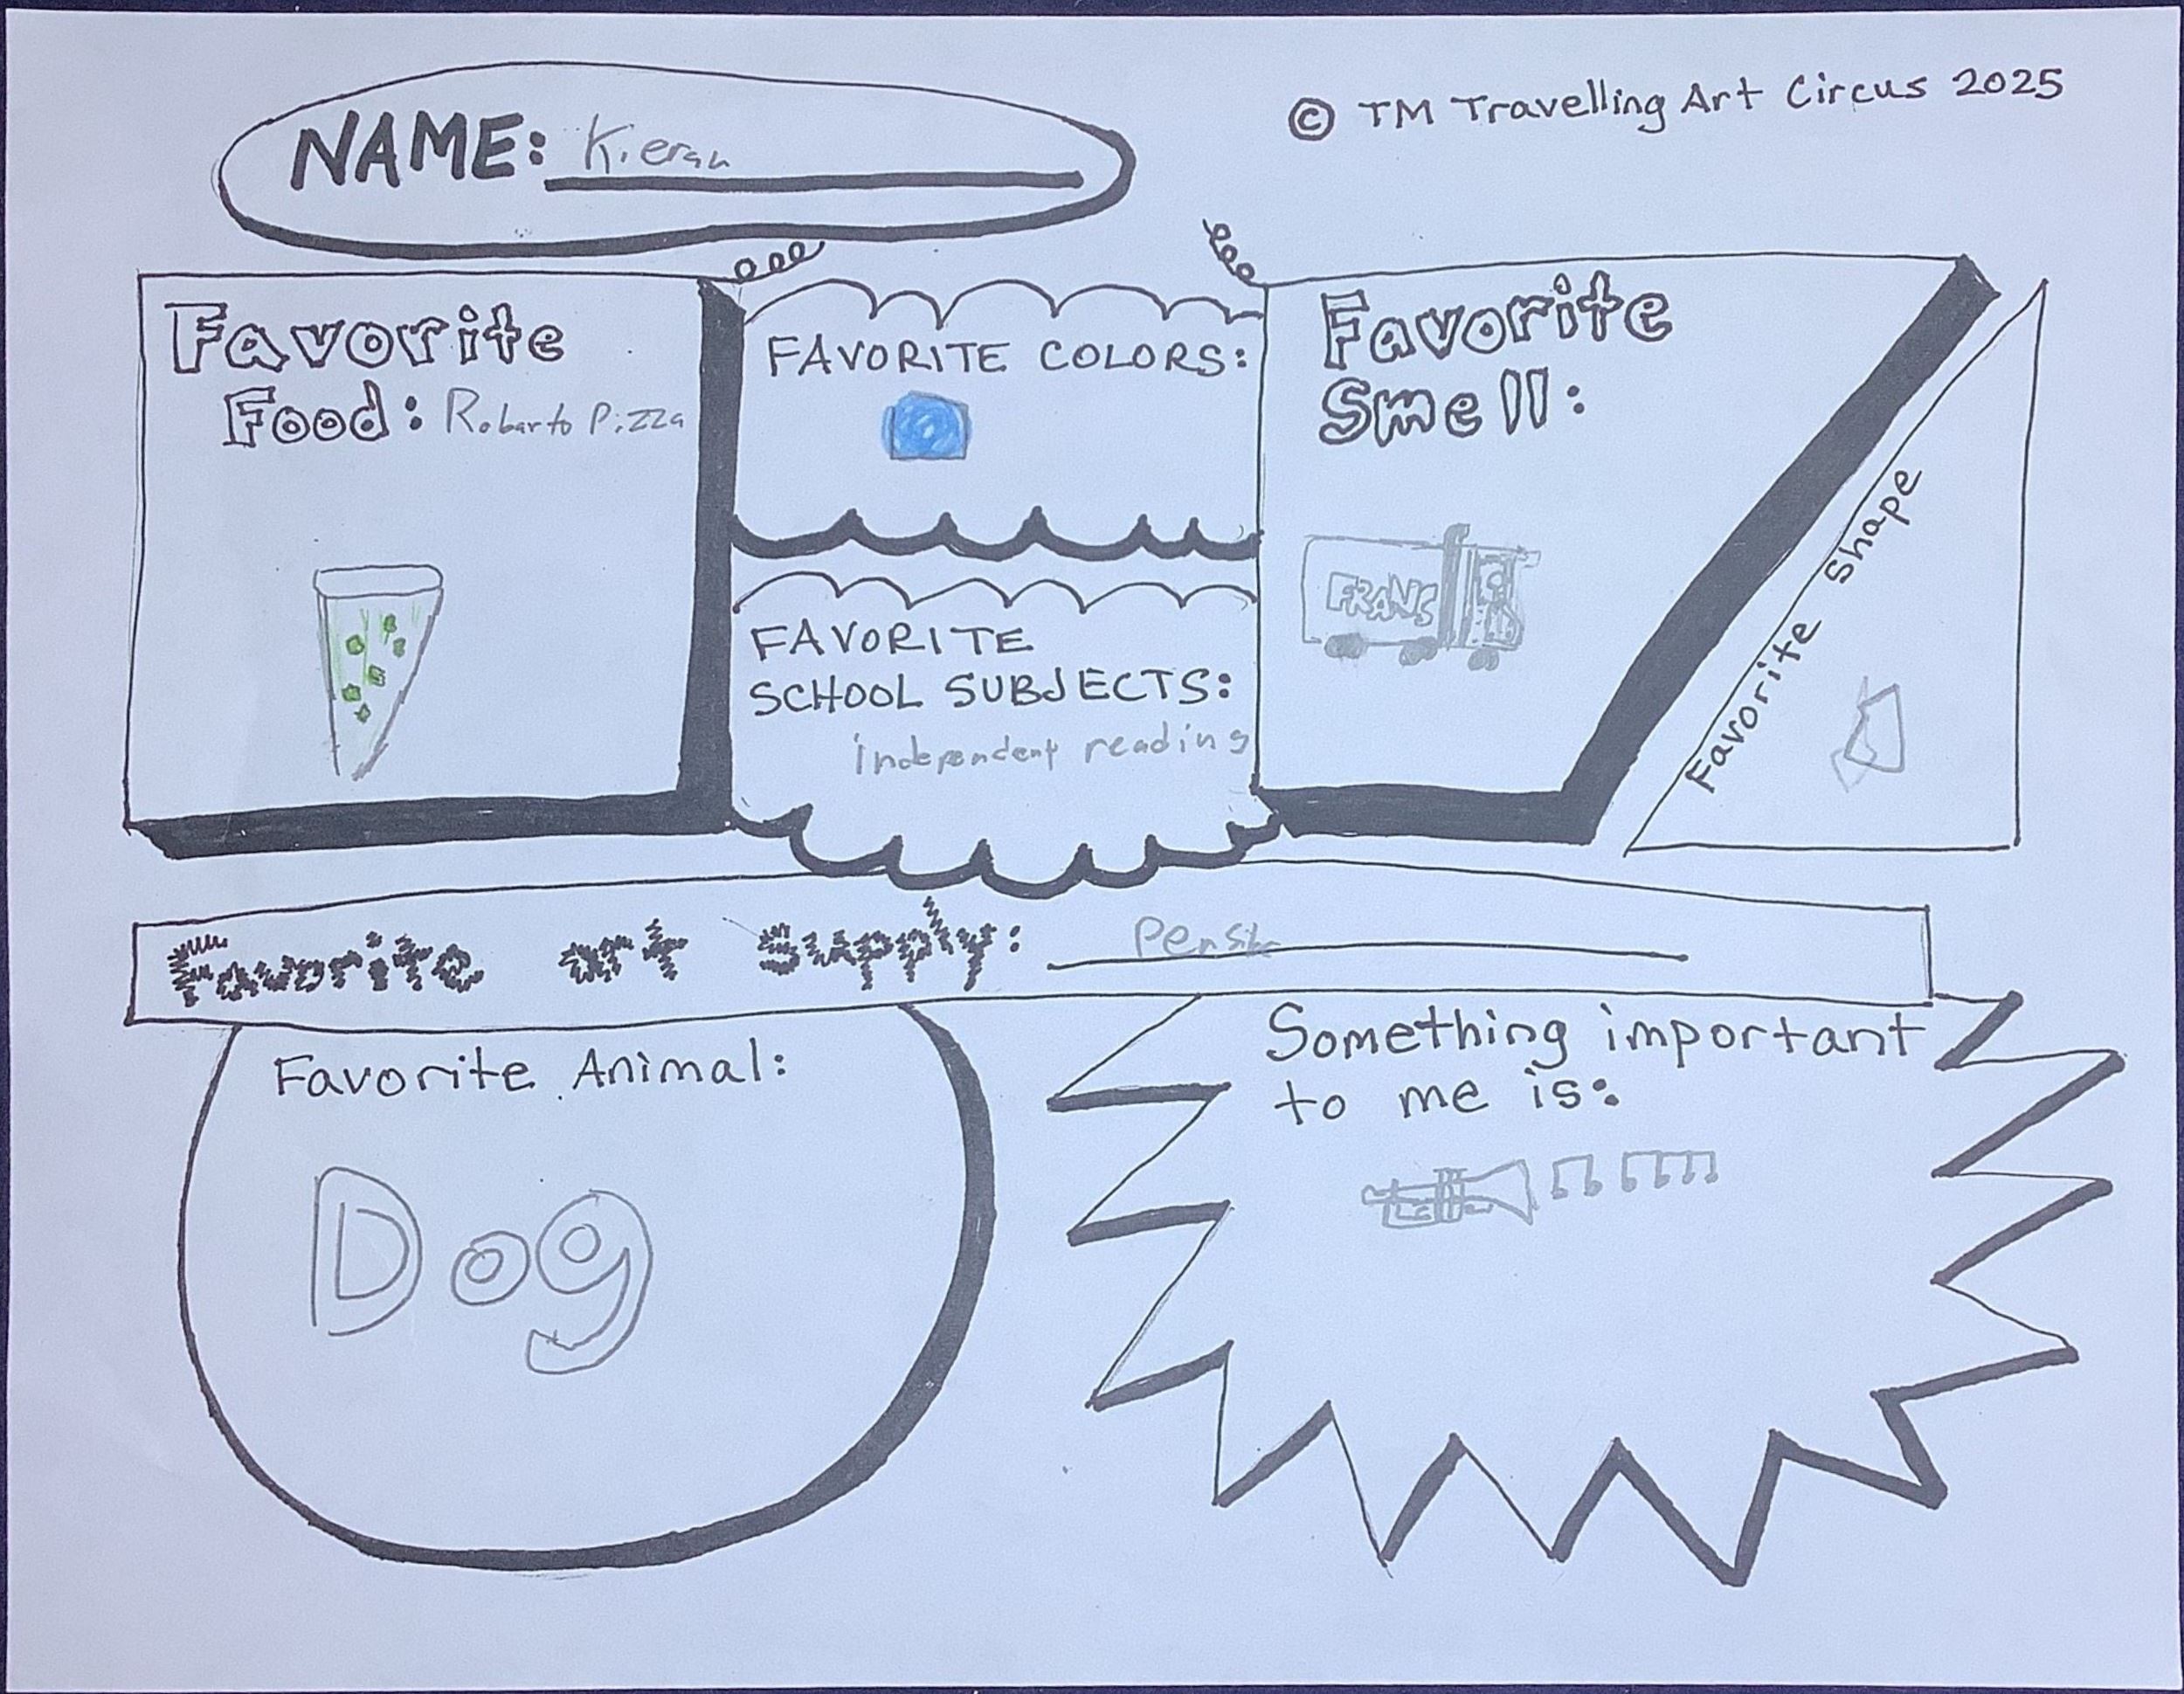 NAME: Kieran
© TM Travelling Art Circus 2025
Favorite
Food: Robarto Pizza
FAVORITE COLORS:
FAVORITE
SCHOOL SUBJECTS:
independent reading
Favorite
Smell:
FRANS
Favorite Shape
Favorite art supply:
Favorite Animal:
Dog
Something important
to me is: